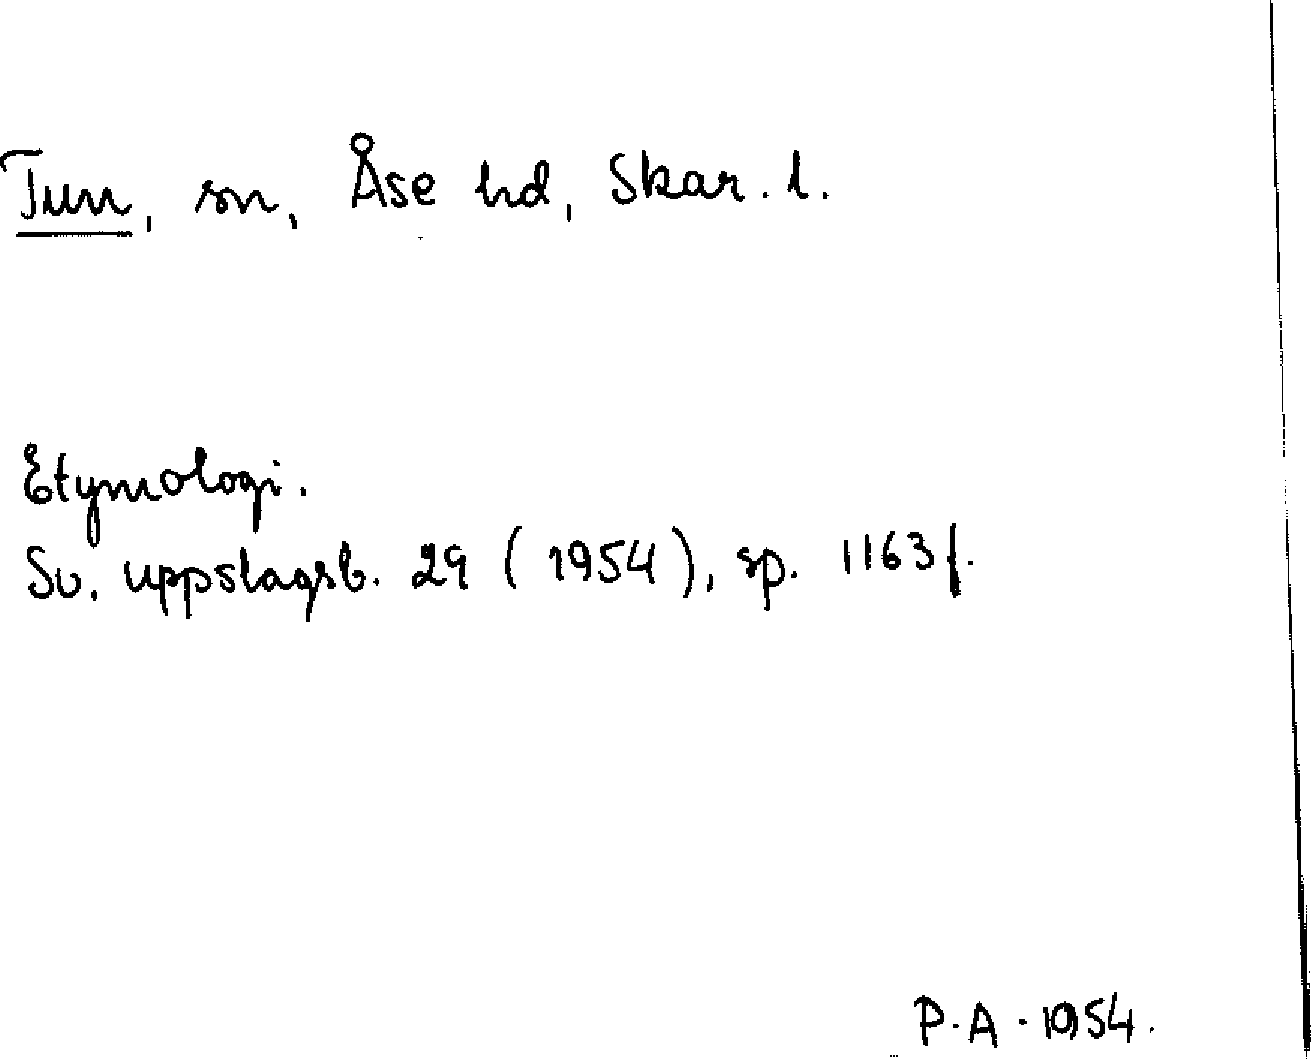 Tun, sn, Åse hd, Skar. l.
Etymologi.
Sv. uppslagsb. 29 (1954), sp. 1163 f.
P.A. 1954.